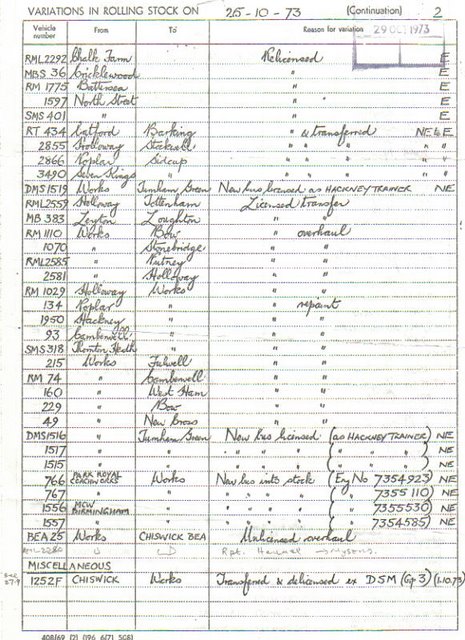 VARIATIONS IN ROLLING STOCK ON 25-10-73 (Continuation) 2
Vehicle number From To Reason for variation 29 OCT 1973
RML2292 Chalk Farm Relicensed E
MBS 36 Cricklewood " E
RM 1775 Battersea " E
1597 North Street " " E
SMS 401 " " E
RT 434 Catford Barking " & transferred NE & E
2855 Holloway Stockwell " " " " "
2866 Poplar Sidcup " " " " "
3490 Seven Kings " " " " " "
DMS1519 Works Turnham Green New bus licensed as HACKNEY TRAINER NE
RML2559 Holloway Tottenham Licensed transfer
MB 383 Leyton Loughton " "
RM 1110 Works Bow " overhaul
1070 " Stonebridge " "
RML2585 " Putney " "
2581 " Holloway " "
RM 1029 Holloway Works " "
134 Poplar " " repaint
1950 Hackney " " "
93 Camberwell " " "
SMS318 Thornton Heath " " "
215 Works Fulwell " "
RM 74 " Camberwell " "
160 " West Ham " "
229 " Bow " "
49 " New Cross " "
DMS1516 " Turnham Green New bus licensed (as HACKNEY TRAINER) NE
1517 " " " " " ( " " " ) NE
1515 " " " " " ( " " " ) NE
766 PARK ROYAL COACHWORKS Works New bus into stock (Eng No 7354923) NE
767 " " " " " " ( " 7355110) NE
1556 MCW BIRMINGHAM " " " " " ( " 7355530) NE
1557 " " " " " " ( " 7354585) NE
BEA25 Works CHISWICK BEA Unlicensed overhaul
RML2280 Rpt.
MISCELLANEOUS
see 27.9 1252F CHISWICK Works Transferred & delicensed ex DSM (Gp 3) (1.10.73) E
408/69 (2) (196 6/71 508)